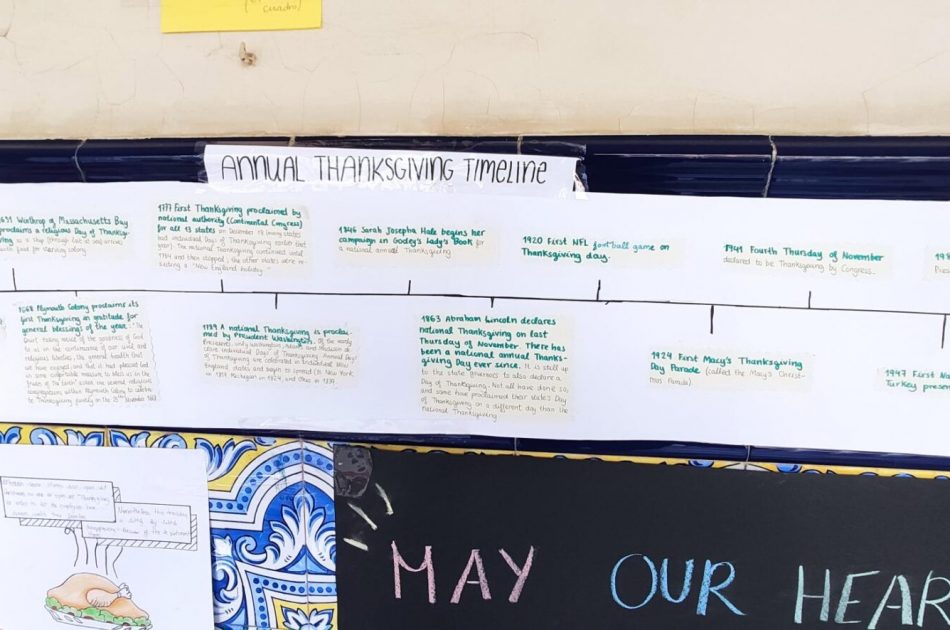 cuadro)
ANNUAL THANKSGIVING TIMELINE
1631 Winthrop of Massachusetts Bay
proclaims a religious Day of Thanksgi-
ving
1777 First Thanksgiving proclaimed by
national authority (Continental Congress)
for all 13 states on December 18 (many states
had individual Days of Thanksgiving earlier that
year). The national Thanksgiving continued until
1784 and then stopped; the other states were re-
sisting a "New England holiday."
1846 Sarah Josepha Hale begins her
campaign in Godey's Lady's Book for
a national annual Thanksgiving.
1920 First NFL football game on
Thanksgiving day.
1941 Fourth Thursday of November
declared to be Thanksgiving by Congress.
198
1668 Plymouth Colony proclaims its
first Thanksgiving in gratitude for
general blessings of the year. "The
Court taking notice of the goodness of God
to us in the continuance of our civil and
religious liberties, the general health that
we have enjoyed, and that it hath pleased God
in some comfortable measure to bless us in the
fruits of the earth"
1789 A national Thanksgiving is proclai-
med by President Washington.
of Thanksgiving are celebrated in individual New
England states and begin to spread (to New York
1863 Abraham Lincoln declares
national Thanksgiving on last
Thursday of November. There has
been a national annual Thanks-
giving Day ever since. It is still up
to the state governors to also declare a
Day of Thanksgiving. Not all have done so,
and some have proclaimed their state's Day
of Thanksgiving on a different day than the
national Thanksgiving.
1924 First Macy's Thanksgiving
Day Parade (called the Macy's Christ-
mas Parade).
1947 First Na
Turkey presen
MAY OUR HEAR